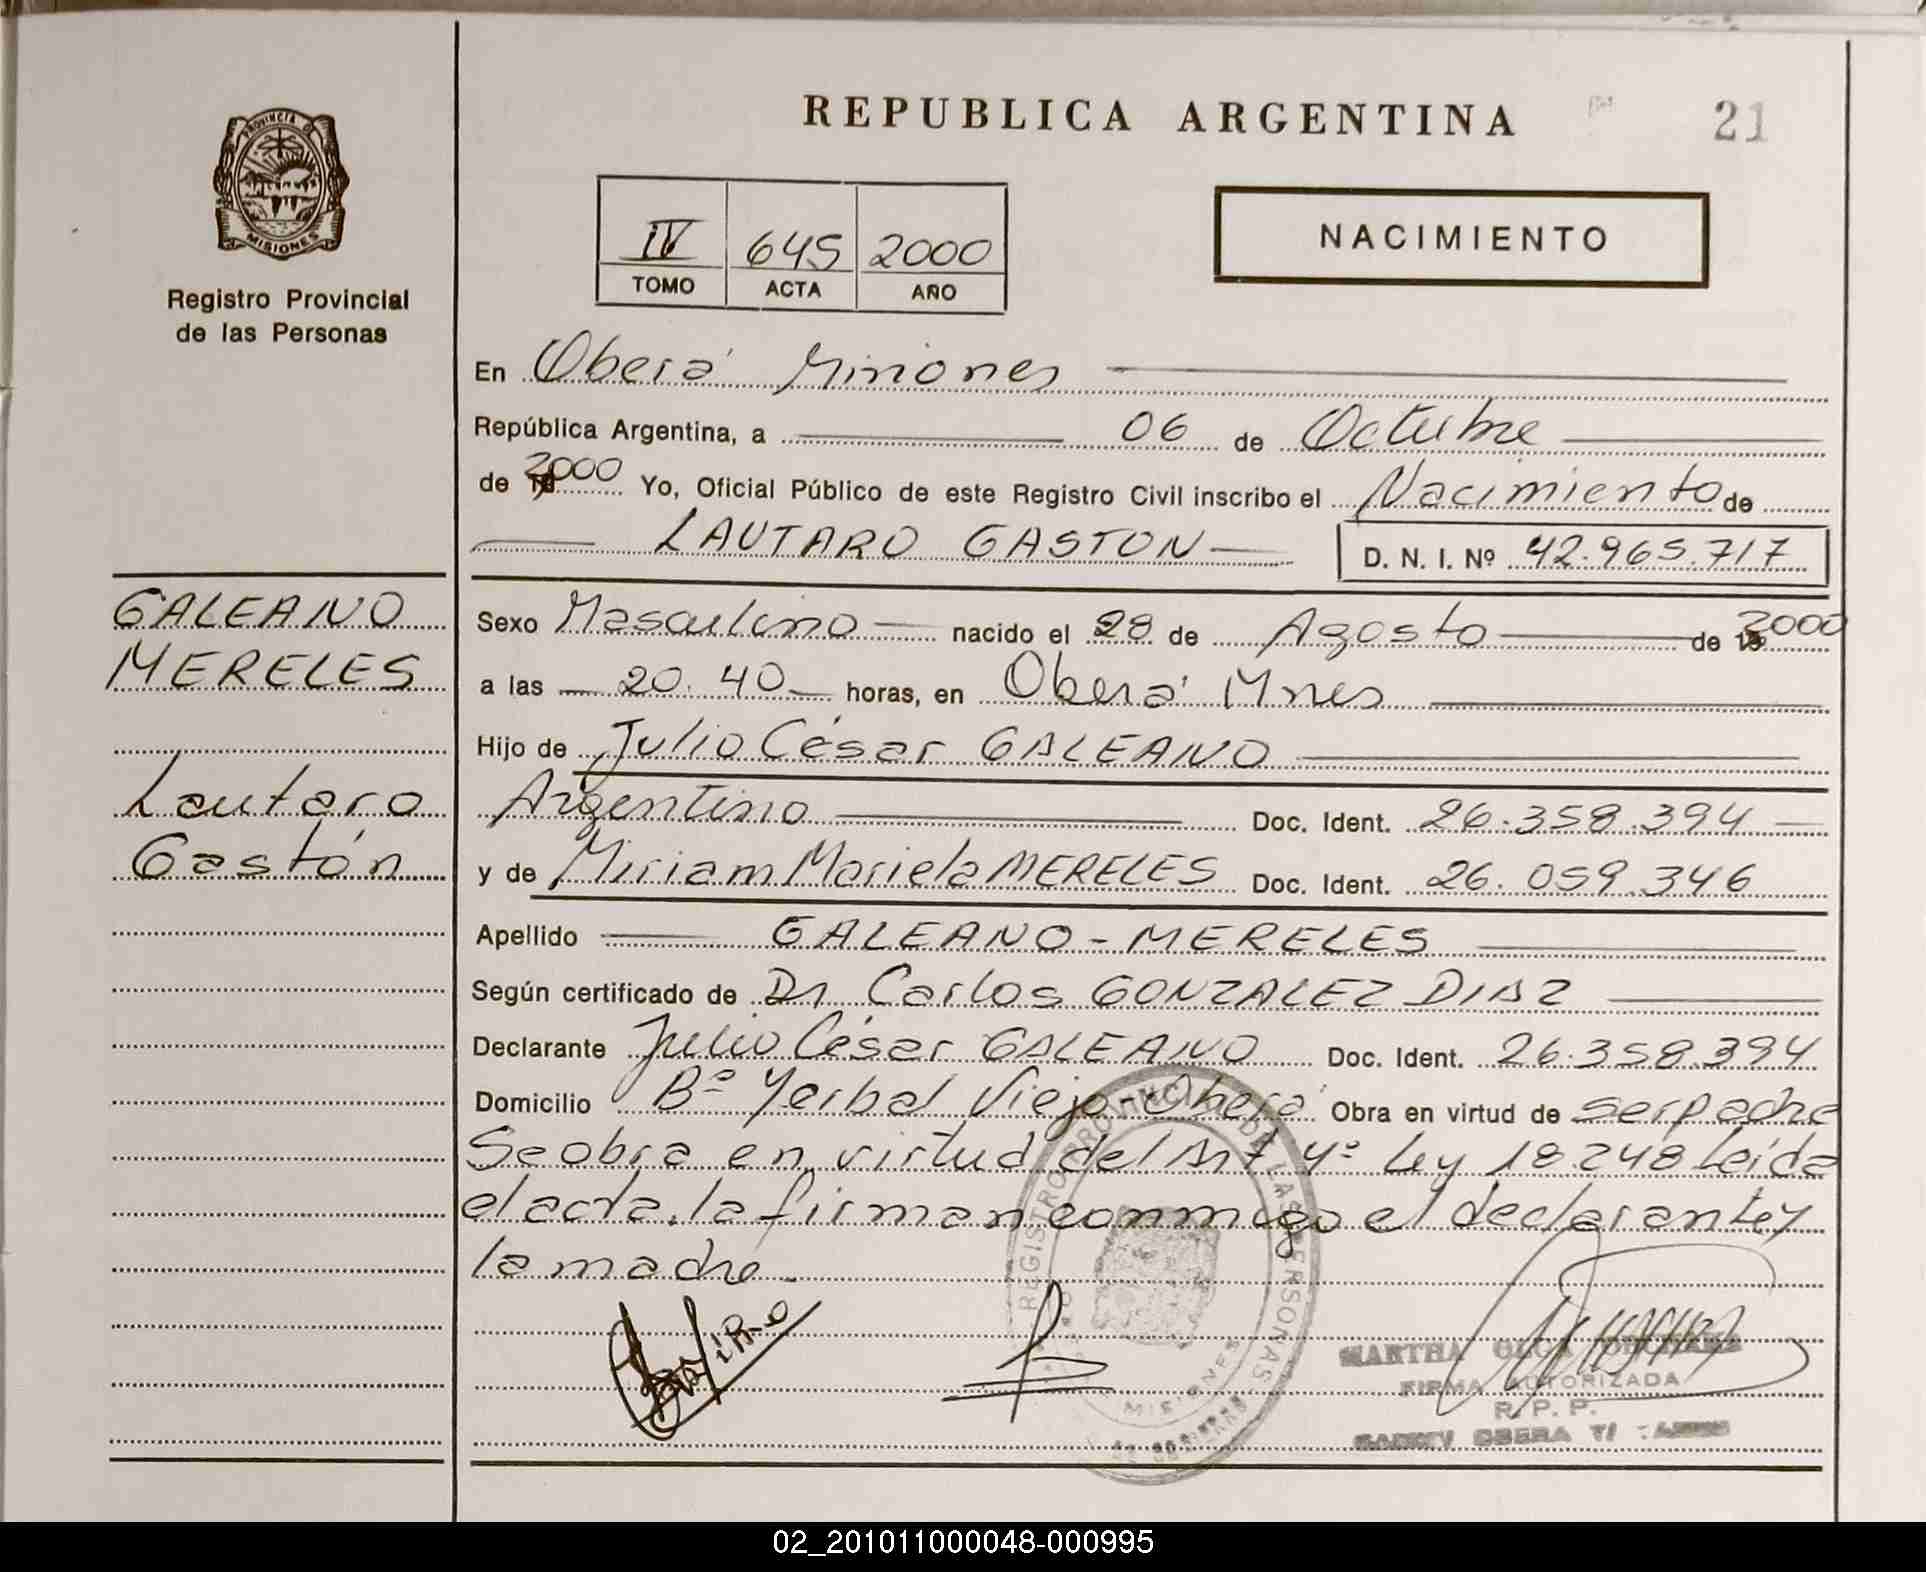 REPUBLICA ARGENTINA
21
PROVINCIA DE
MISIONES
Registro Provincial
de las Personas
IV 645 2000
TOMO ACTA AÑO
NACIMIENTO
En Oberá Misiones
República Argentina, a 06 de Octubre
de 2000 Yo, Oficial Público de este Registro Civil inscribo el Nacimiento de
LAUTARO GASTON D. N. I. Nº 42.965.717
GALEANO
MERELES
Lautaro
Gastón
Sexo Masculino nacido el 28 de Agosto de 2000
a las 20.40 horas, en Oberá Mnes
Hijo de Julio César GALEANO
Argentino Doc. Ident. 26.358.394
y de Miriam Mariela MERELES Doc. Ident. 26.059.346
Apellido GALEANO-MERELES
Según certificado de Dr Carlos GONZALEZ DIAZ
Declarante Julio César GALEANO Doc. Ident. 26.358.394
Domicilio Bº Yerbal Viejo-Oberá Obra en virtud de ser padre
Se obra en virtud del Art 4º Ley 18.248 Leída
el acta, la firman conmigo el declarante y
la madre.
REGISTRO PROVINCIAL DE LAS PERSONAS
MISIONES
MARTHA OLGA
FIRMA AUTORIZADA
R. P. P.
OBERA
02_201011000048-000995